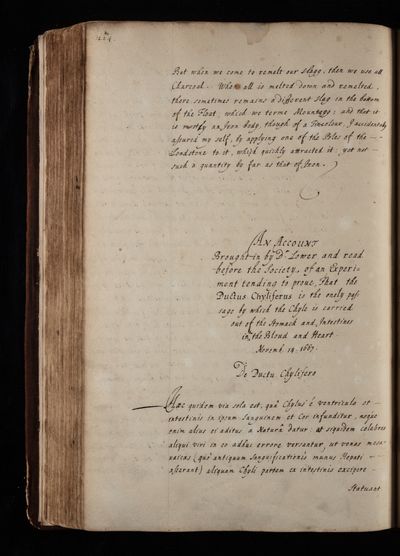 224.
But when we come to remelt our slagg, then we use all
Charcoal. When all is melted down and remelted,
there sometimes remains a different slag in the bottom
of the Float, which we terme Mountegg: and that it
is mostly an Iron body, though of a Tincolour, I accidentally
assured my self, by applying one of the Poles of the
Loadstone to it, which quickly attracted it, yet not
such a quantity by far as that of Iron.
AN ACCOUNT
Brought in by Dr. Lower and read
before the Society, of an Experi-
ment tending to proue, That the
Ductus Chyliferus is the onely pas-
sage by which the Chyle is carried
out of the Stomack and Intestines
into the Bloud and Heart.
Novemb. 18. 1667.
De Ductu Chylifero
Hæc quidem via sola est, quâ Chylus è ventriculo et
intestinis in ipsum Sanguinem et Cor infunditur, neque
enim alius ei aditus a Naturâ datur: ut siquidem celebres
aliqui viri in eo adhuc errore versantur, ut venas mesa-
raicas (quæ antiquum Sanguificationis munus Hepati
asserant) aliquam Chyli partem ex intestinis excipere
Statuant